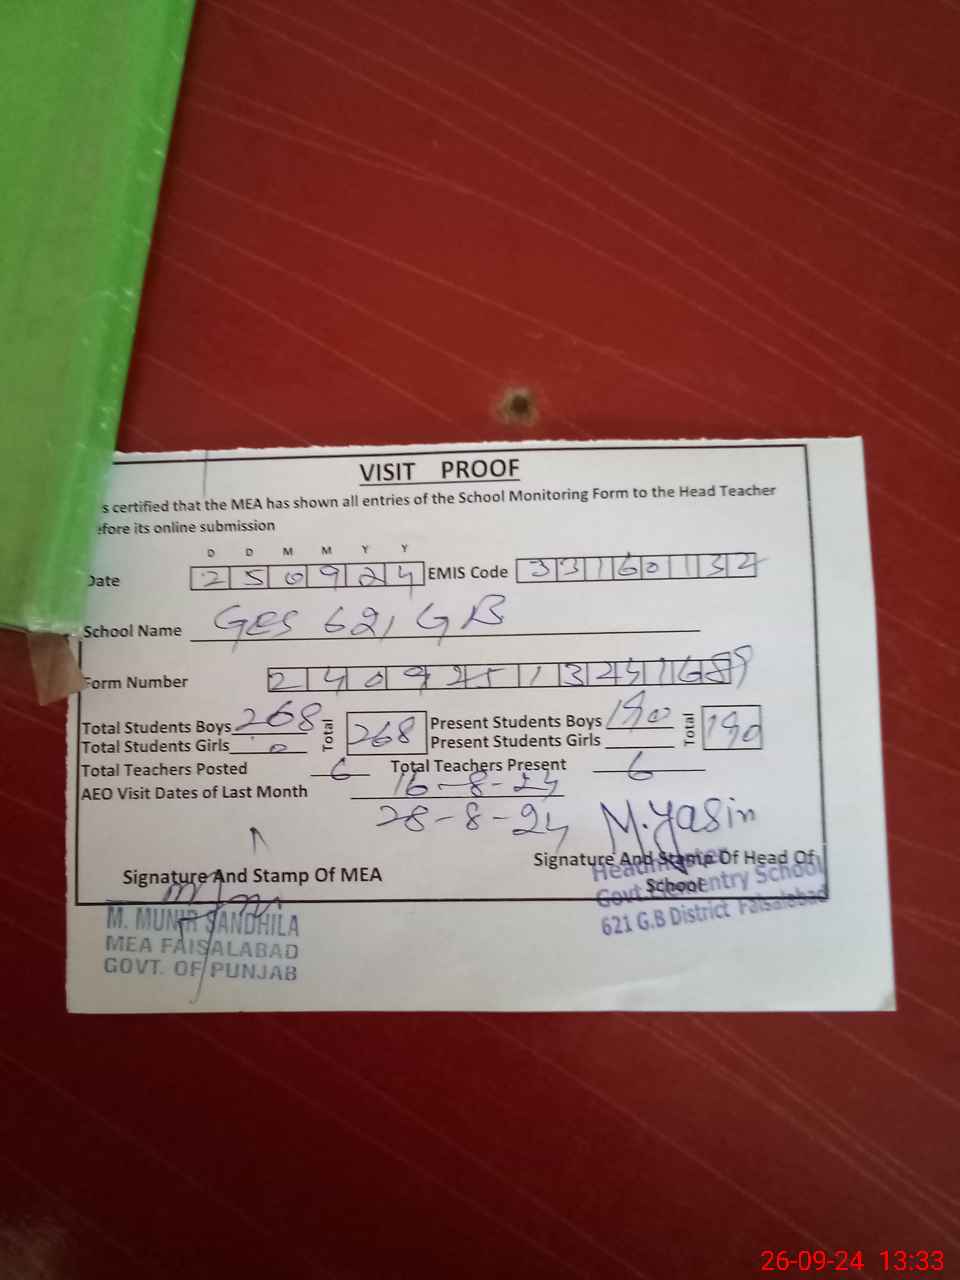 VISIT PROOF
s certified that the MEA has shown all entries of the School Monitoring Form to the Head Teacher
efore its online submission
D D M M Y Y
Date 250924 EMIS Code 33160132
School Name GES 621 GB
Form Number
Total Students Boys 268 Total 268 Present Students Boys 190 Total 190
Total Students Girls 0 Present Students Girls
Total Teachers Posted 6 Total Teachers Present 6
AEO Visit Dates of Last Month 16-8-24
28-8-24 M.Yasin
Signature And Stamp Of MEA Signature And Stamp Of Head Of School
Headmaster
Govt. Elementry School
621 G.B District Faisalabad
M. MUNIR SANDHILA
MEA FAISALABAD
GOVT. OF PUNJAB
26-09-24 13:33